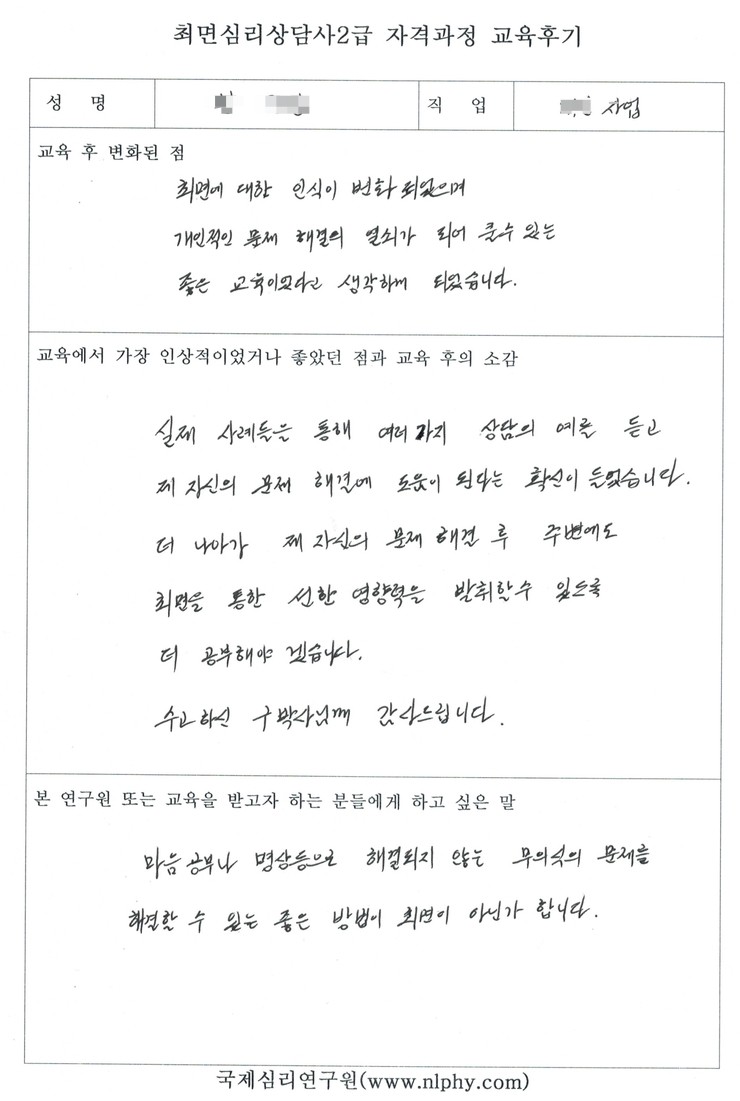 최면심리상담사2급 자격과정 교육후기
성 명 직 업 사업
교육 후 변화된 점
최면에 대한 인식이 변화 되었으며
개인적인 문제 해결의 열쇠가 되어 줄수 있는
좋은 교육이었다고 생각하게 되었습니다.
교육에서 가장 인상적이었거나 좋았던 점과 교육 후의 소감
실제 사례들을 통해 여러가지 상담의 예를 듣고
제 자신의 문제 해결에 도움이 된다는 확신이 들었습니다.
더 나아가 제 자신의 문제 해결 후 주변에도
최면을 통한 선한 영향력을 발휘할수 있도록
더 공부해야 겠습니다.
수고하신 구박사님께 감사드립니다.
본 연구원 또는 교육을 받고자 하는 분들에게 하고 싶은 말
마음공부나 명상등으로 해결되지 않는 무의식의 문제를
해결할 수 있는 좋은 방법이 최면이 아닌가 합니다.
국제심리연구원(www.nlphy.com)